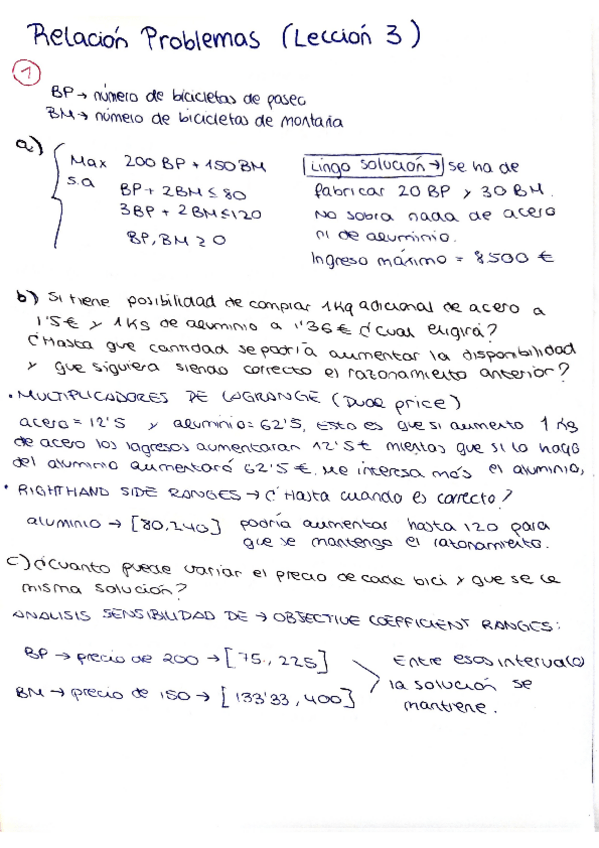 Relación Problemas (Lección 3)
1
BP → número de bicicletas de paseo
BM → número de bicicletas de montaña
a) Max 200 BP + 150 BM
s.a BP + 2BM ≤ 80
3BP + 2BM ≤ 120
BP, BM ≥ 0
Lingo solución → se ha de
fabricar 20 BP y 30 BM.
No sobra nada de acero
ni de aluminio.
Ingreso máximo = 8500 €
b) Si tiene posibilidad de comprar 1Kg adicional de acero a
1'5€ y 1Kg de aluminio a 1'36€ ¿cual eligirá?
¿Hasta que cantidad se podría aumentar la disponibilidad
y que siguiera siendo correcto el razonamiento anterior?
• MULTIPLICADORES DE LAGRANGE (Dual price)
acero = 12'5 y aluminio = 62'5, Esto es que si aumento 1 Kg
de acero los ingresos aumentaran 12'5€ mientas que si lo hago
del aluminio aumentará 62'5 €. Me interesa más el aluminio,
• RIGHTHAND SIDE RANGES → ¿Hasta cuando es correcto?
aluminio → [80,240] podría aumentar hasta 120 para
que se mantenga el razonamiento.
c) ¿Cuanto puede variar el precio de cada bici y que se la
misma solución?
ANALISIS SENSIBILIDAD DE → OBJECTIVE COEFFICIENT RANGES:
BP → precio de 200 → [75, 225]
BM → precio de 150 → [133'33, 400]
Entre esos intervalo
la solución se
mantiene.